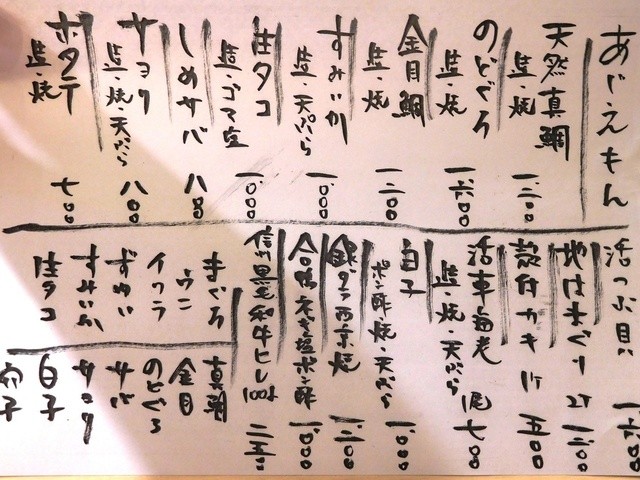 あじえもん
天然真鯛
塩・焼
一、二〇〇
のどぐろ
塩・焼
一、六〇〇
金目鯛
塩・焼
一、二〇〇
すみいか
塩・天ぷら
一、〇〇〇
佳タコ
塩・ゴマ
一、〇〇〇
しめサバ
八〇〇
サヨリ
塩・焼・天ぷら
八〇〇
ホタテ
塩・焼
七〇〇
活つぶ貝
一、六〇〇
地はまぐり 2ケ
殻付カキ 1ケ
五〇〇
活車海老
塩・焼・天ぷら 1尾
七〇〇
白子
ポン酢・焼・天ぷら
一、〇〇〇
銀ダラ西京焼
合鴨ねぎ塩ポン酢
一、〇〇〇
信州黒毛和牛ヒレ 100g
まぐろ
ウニ
イクラ
ずわい
すみいか
佳タコ
真鯛
金目
のどぐろ
サバ
サヨリ
白子
穴子